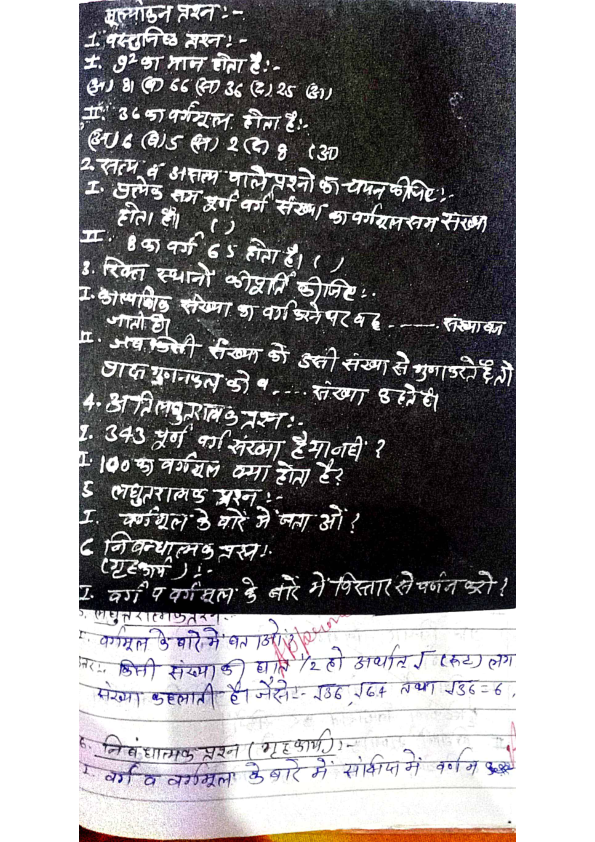 मूल्यांकन प्रश्न :-
1. वस्तुनिष्ठ प्रश्न :-
I. 9² का मान होता है :-
(अ) 81 (ब) 66 (स) 36 (द) 25 (अ)
II. 36 का वर्गमूल होता है :-
(अ) 6 (ब) 5 (स) 2 (द) 8 (अ)
2. सत्य व असत्य वाले प्रश्नों का चयन कीजिए :-
I. प्रत्येक सम पूर्ण वर्ग संख्या का वर्गमूल सम संख्या
होता है। ( )
II. 8 का वर्ग 65 होता है। ( )
3. रिक्त स्थानों की पूर्ति कीजिए :-
I. संख्या का वर्ग करने पर वह ------- संख्या बन
जाती है।
II. जब किसी संख्या को उसी संख्या से गुणा करते है, तो
प्राप्त गुणनफल को व .... संख्या कहते है।
4. अतिलघुतरात्मक प्रश्न :-
I. 343 पूर्ण वर्ग संख्या है या नहीं ?
I. 100 का वर्गमूल क्या होता है ?
5 लघुतरात्मक प्रश्न :-
I. वर्गमूल के बारे में बताओं ?
6 निबन्धात्मक प्रश्न :
(गृहकार्य) :-
I. वर्ग व वर्गमूल के बारे में विस्तार से वर्णन करो ?
लघुतरात्मक प्रश्न :-
I. वर्गमूल के बारे में बताओं ?
किसी संख्या की घात 1/2 हो अर्थात √ (रूट) लग
संख्या कहलाती है। जैसे :- √36, √64 तथा √36 = 6,
6. निबंधात्मक प्रश्न (गृहकार्य) :-
I. वर्ग व वर्गमूल के बारे में संक्षिप्त में वर्णन